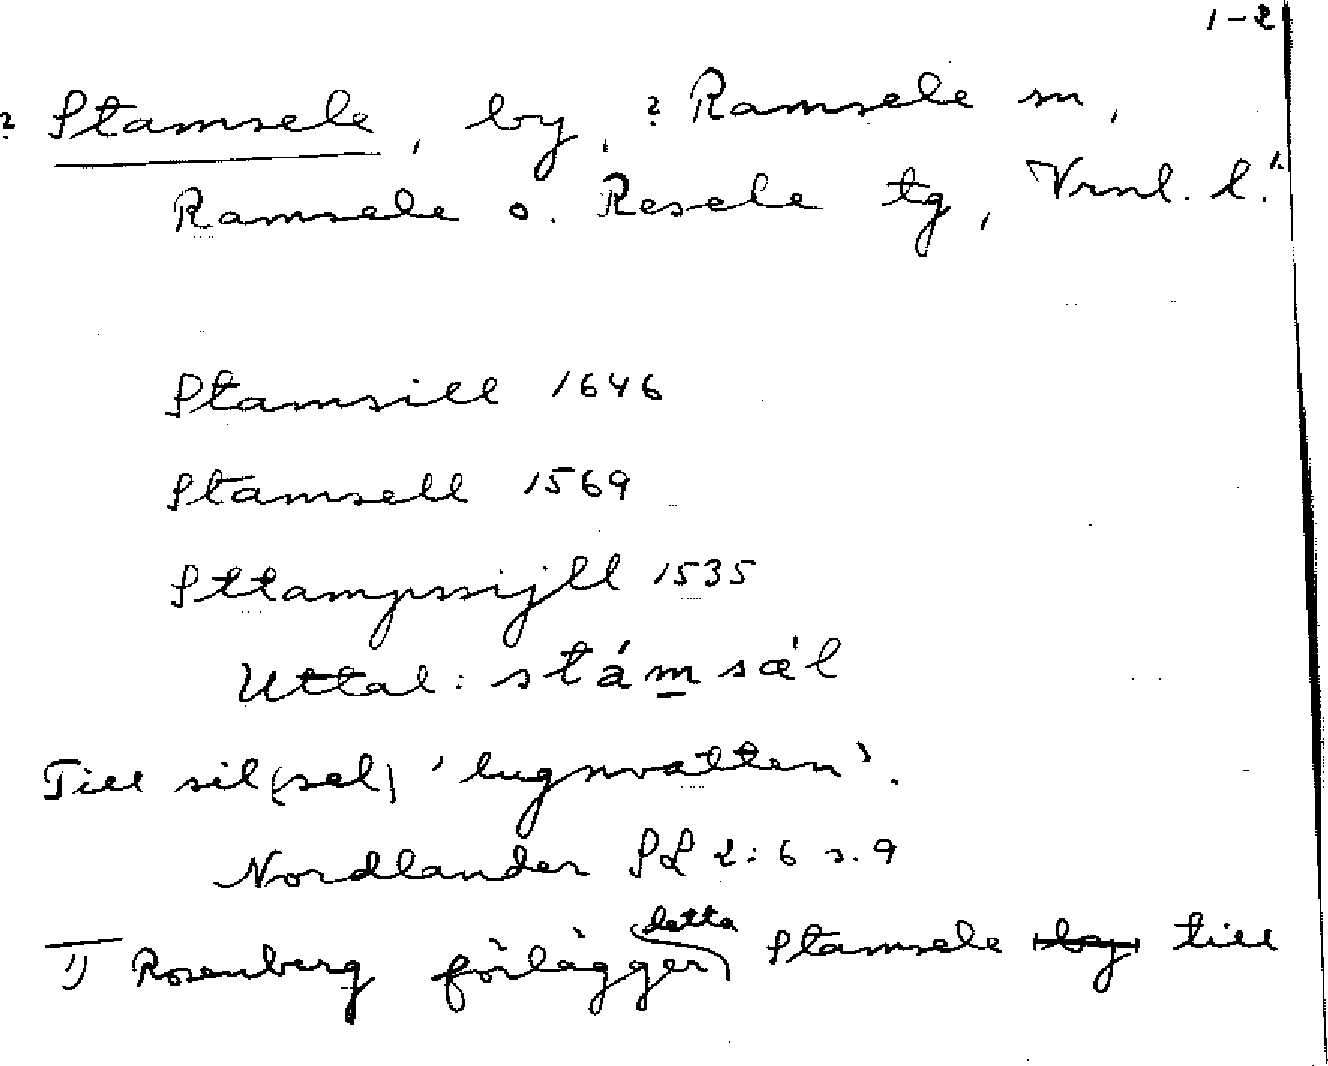 1-2
? Stamsele, by, ? Ramsele sn,
Ramsele o. Resele tg, Vrnl. l.¹⁾
Stamsill 1646
Stamsell 1569
Sttampssijll 1535
Uttal: stámsæ̀l
Till sil (sel) 'lugnvatten'.
Nordlander SL 2:6 s. 9
1) Rosenberg förlägger detta Stamsele till